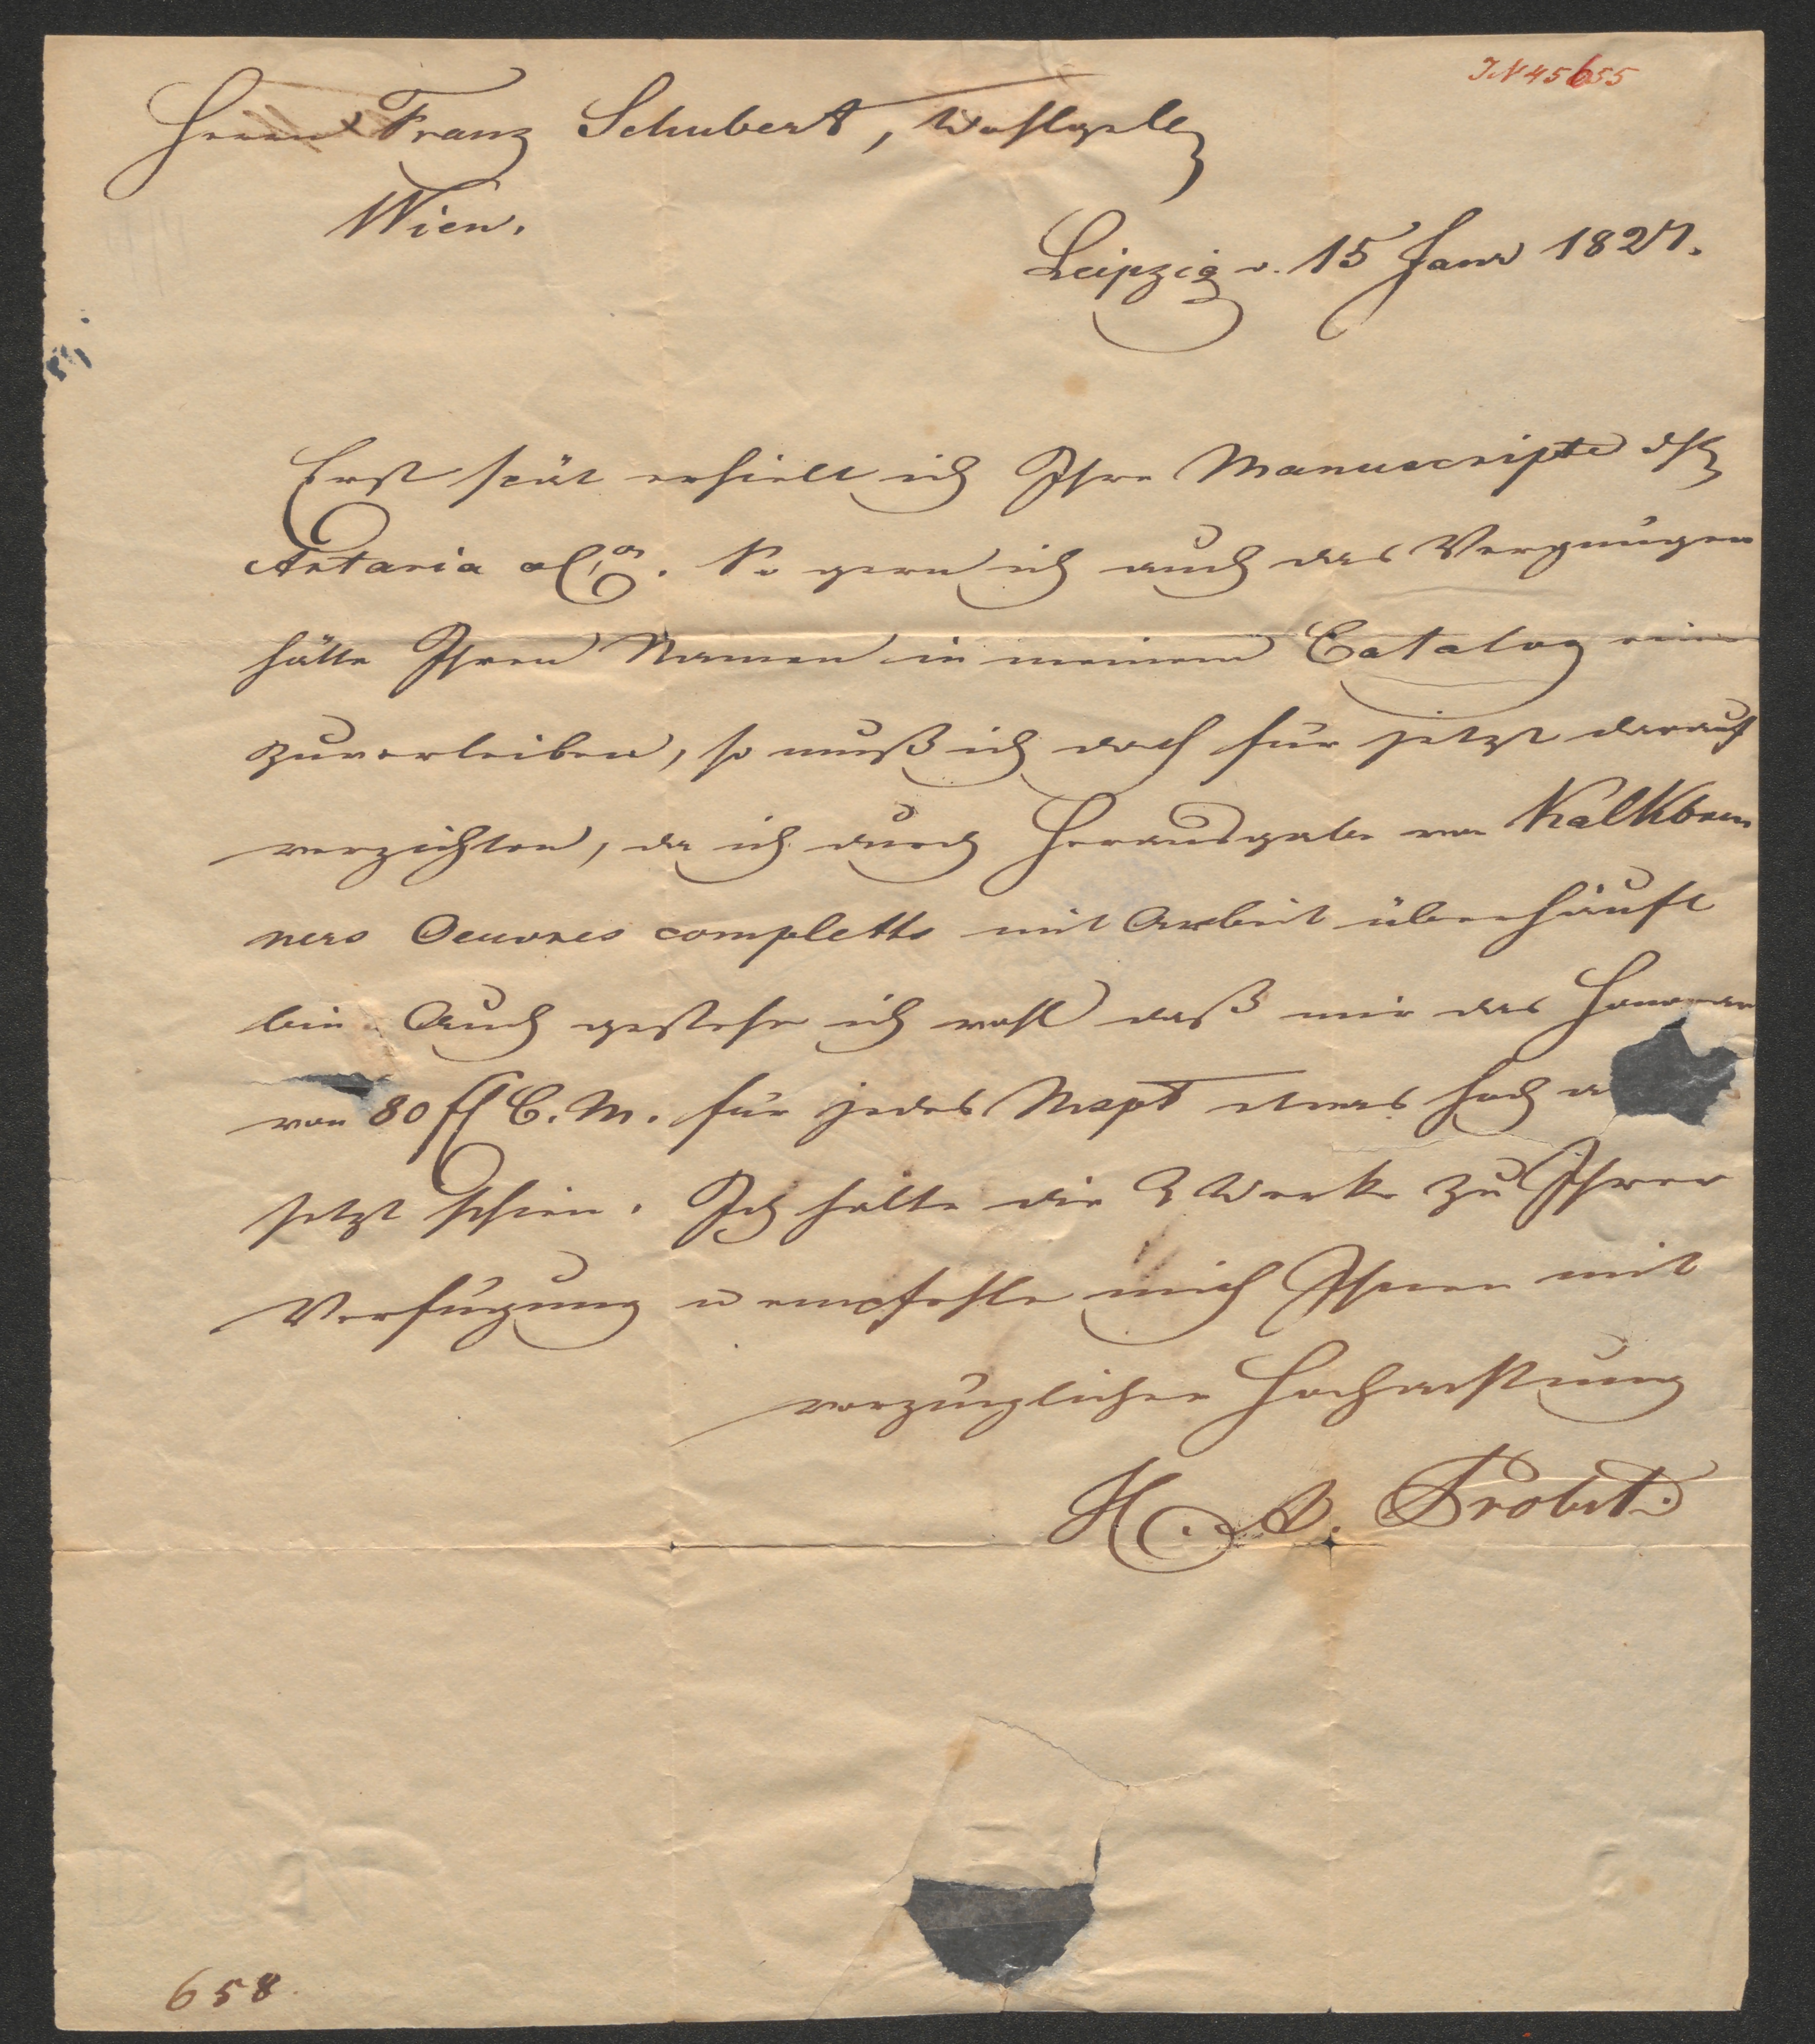 IN 45655
Herrn Franz Schubert, Wohlgeb
Wien.
Leipzig d. 15 Janr 1827.
Erst spät erhielt ich Ihre Manuscripte dch
Artaria & Co. So gern ich auch das Vergnügen
hätte Ihren Namen in meinem Catalog ein
zuverleiben, so muß ich doch für jetzt darauf
verzichten, da ich durch Herausgabe von Kalkbren
ners Oeuvres complettes mit Arbeit überhäuft
bin. Auch gestehe ich wohl daß mir das Honorar
von 80 fl C. M. für jedes Mspt etwas hoch a
setzt schien. Ich halte die Werke zu Ihrer
Verfügung u empfehle mich Ihnen mit
vorzüglicher Hochachtung
H. A. Probst.
658.